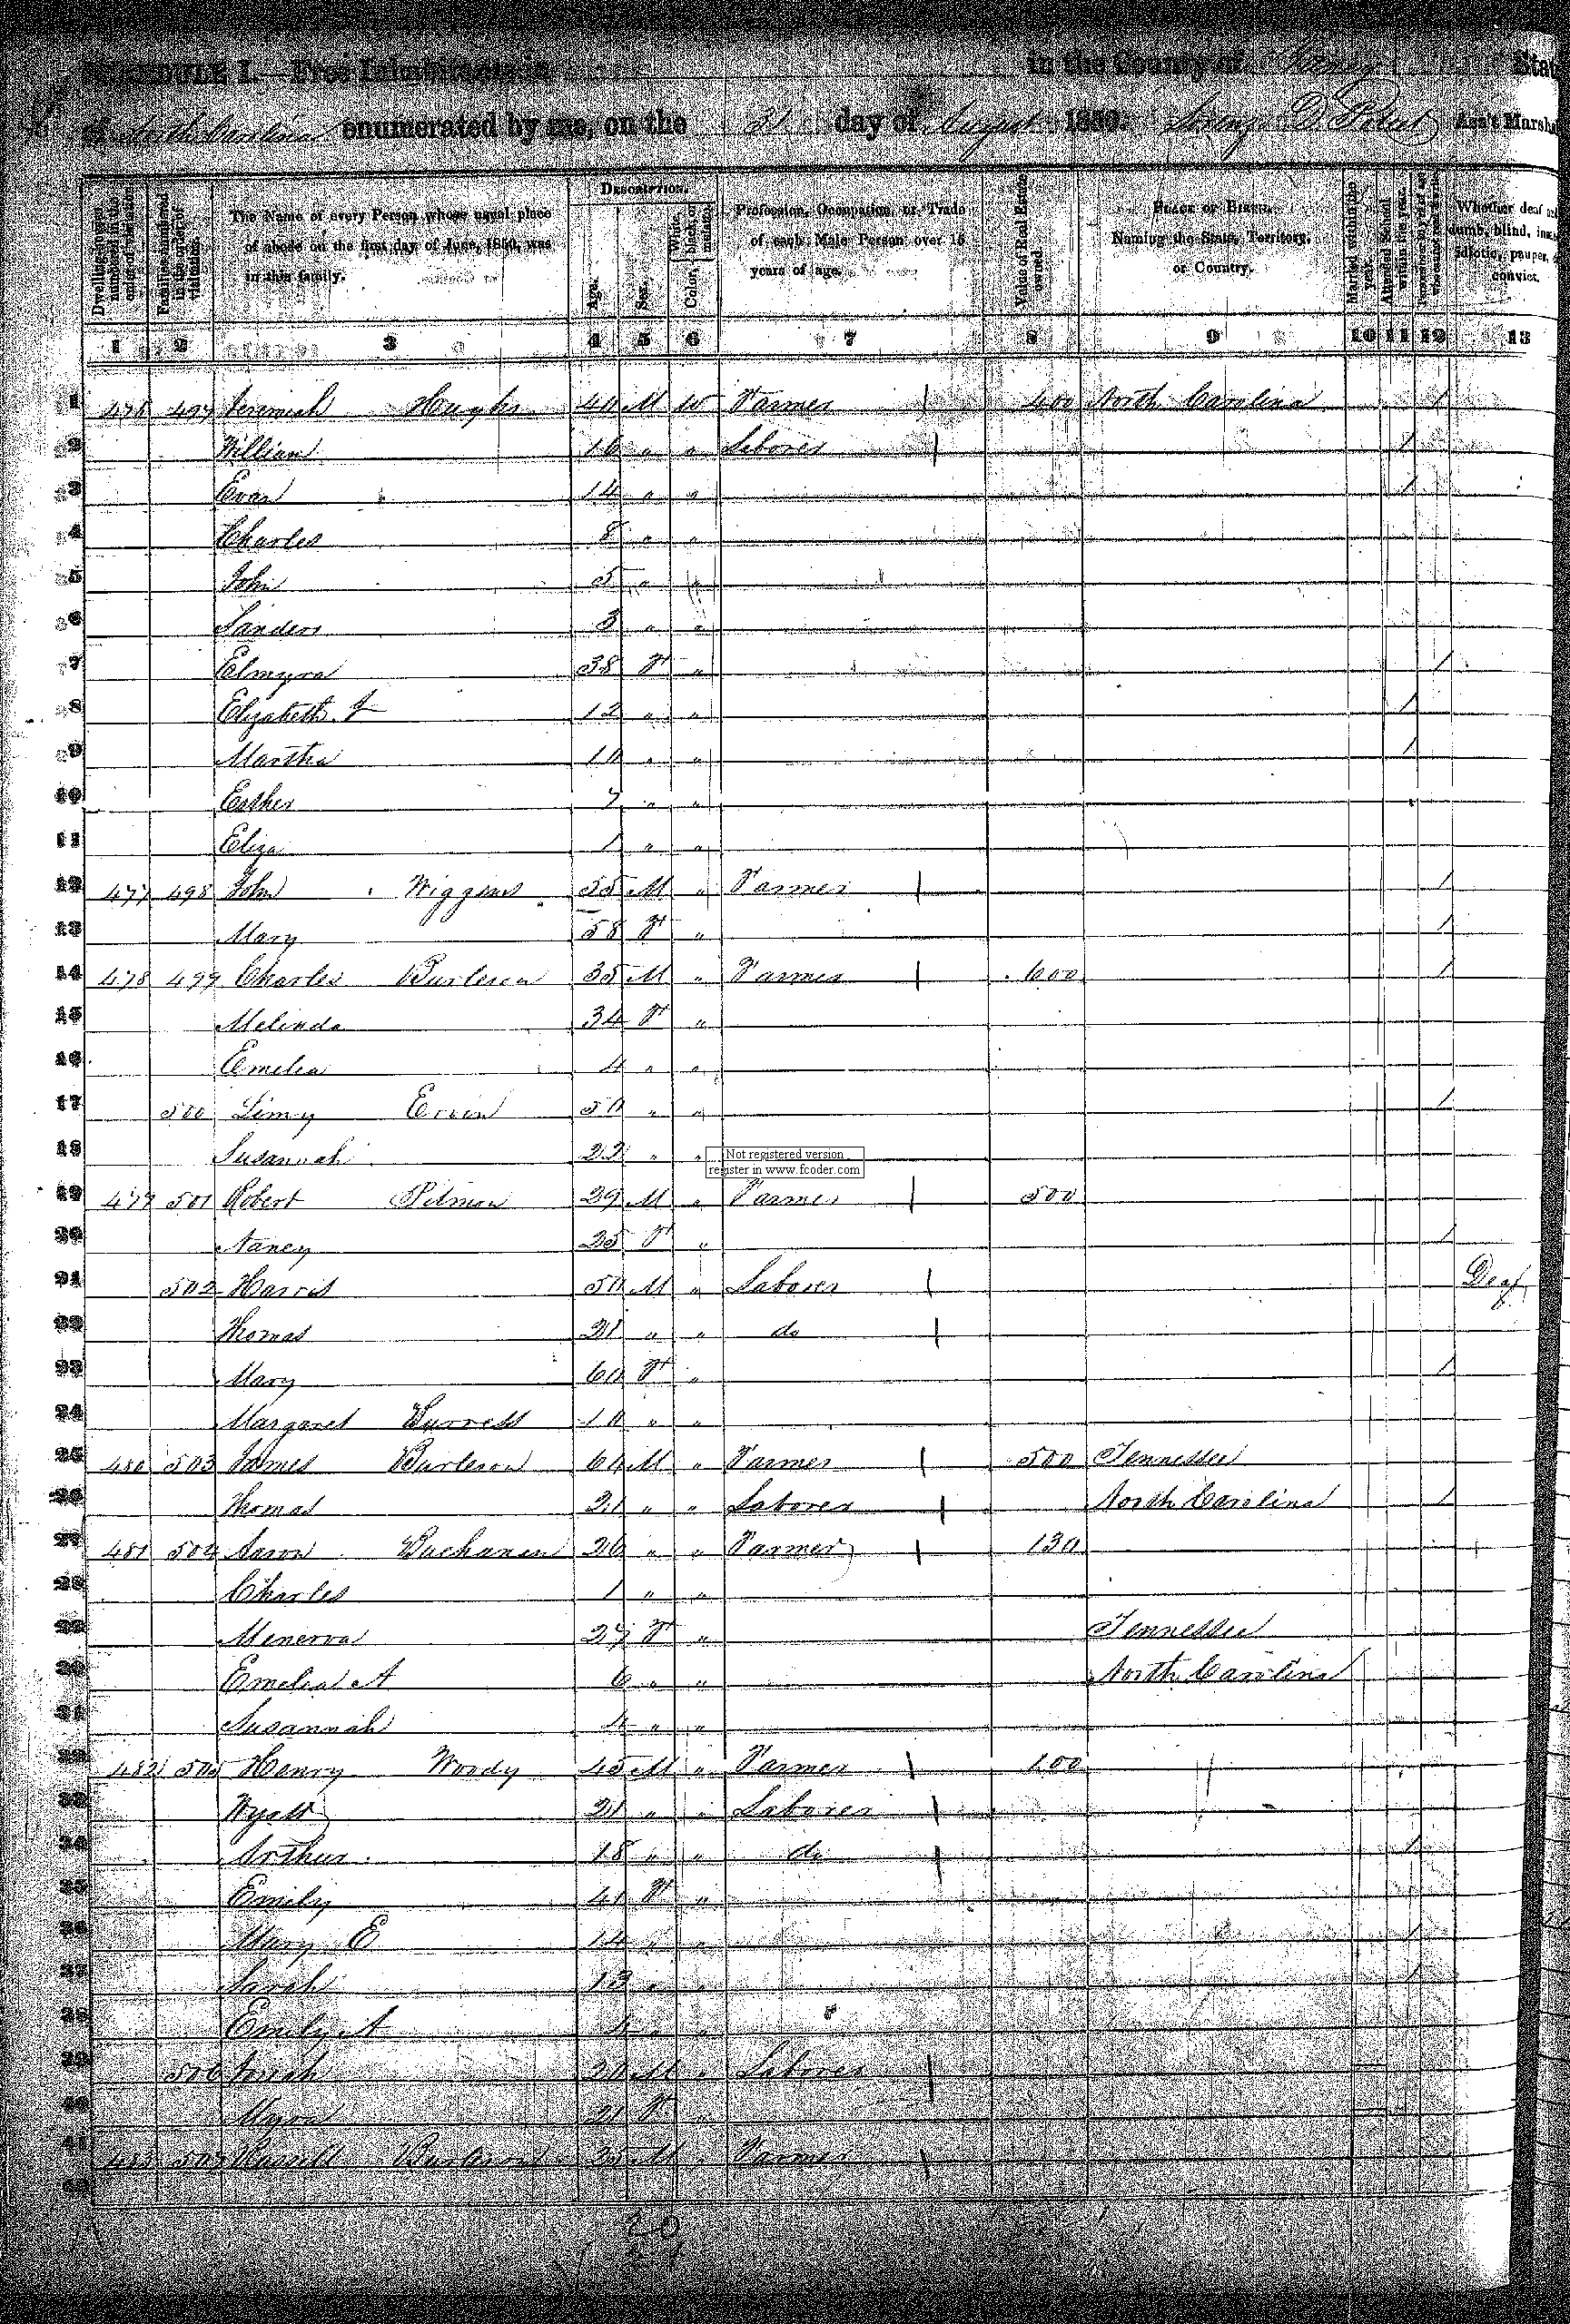 SCHEDULE I.—Free Inhabitants in in the County of Yancey State
of North Carolina enumerated by me, on the 31 day of August 1850. Ass't Marshal
Dwelling-houses numbered in the order of visitation.
Families numbered in the order of visitation.
The Name of every Person whose usual place of abode on the first day of June, 1850, was in this family.
Description.
Age.
Sex.
Color, White, black, or mulatto.
Profession, Occupation, or Trade of each Male Person over 15 years of age.
Value of Real Estate owned.
Place of Birth. Naming the State, Territory, or Country.
Married within the year.
Attended School within the year.
Persons over 20 y'rs of age who cannot read & write.
Whether deaf and dumb, blind, insane, idiotic, pauper, or convict.
1 2 3 4 5 6 7 8 9 10 11 12 13
1 476 497 Jeremiah Hughs 40 M W Farmer 400 North Carolina 1
2 William 16 " " Laborer 1
3 Evan 14 " " 1
4 Charles 8 " "
5 John 5 " "
6 Sanders 3 " "
7 Elmyra 38 F " 1
8 Elizabeth 12 " " 1
9 Martha 10 " " 1
10 Esther 7 " "
11 Eliza 1 " "
12 477 498 John Wiggins 55 M " Farmer 1
13 Mary 58 F " 1
14 478 499 Charles Burleson 35 M " Farmer 600 1
15 Melinda 34 F "
16 Emelia 4 " "
17 500 Limy Ervin 50 " " 1
18 Susannah 22 " "
Not registered version
register in www.fcoder.com
19 479 501 Robert Pitman 29 M " Farmer 500
20 Nancy 25 F " 1
21 502 Harris 50 M " Laborer Deaf
22 Thomas 21 " " do
23 Mary 60 F " 1
24 Margaret 10 " "
25 480 503 James Burleson 64 M " Farmer 500 Tennessee
26 Thomas 21 " " Laborer North Carolina 1
27 481 504 Aaron Buchanan 26 " " Farmer 130
28 Charles 1 " "
29 Menerva 27 F " Tennessee
30 Emelia A 6 " " North Carolina
31 Susannah 4 " "
32 482 505 Henry Woody 45 M " Farmer 100
33 Wyatt 21 " " Laborer
34 Arthur 18 " " do 1
35 Emily 41 F "
36 Mary E 14 " " 1
37 Sarah 13 " 1
38 Emily A
39 506 Josiah 20 M " Laborer
40 Myra 21 F
41 483 507 Burleson 25 M " Farmer
42
20